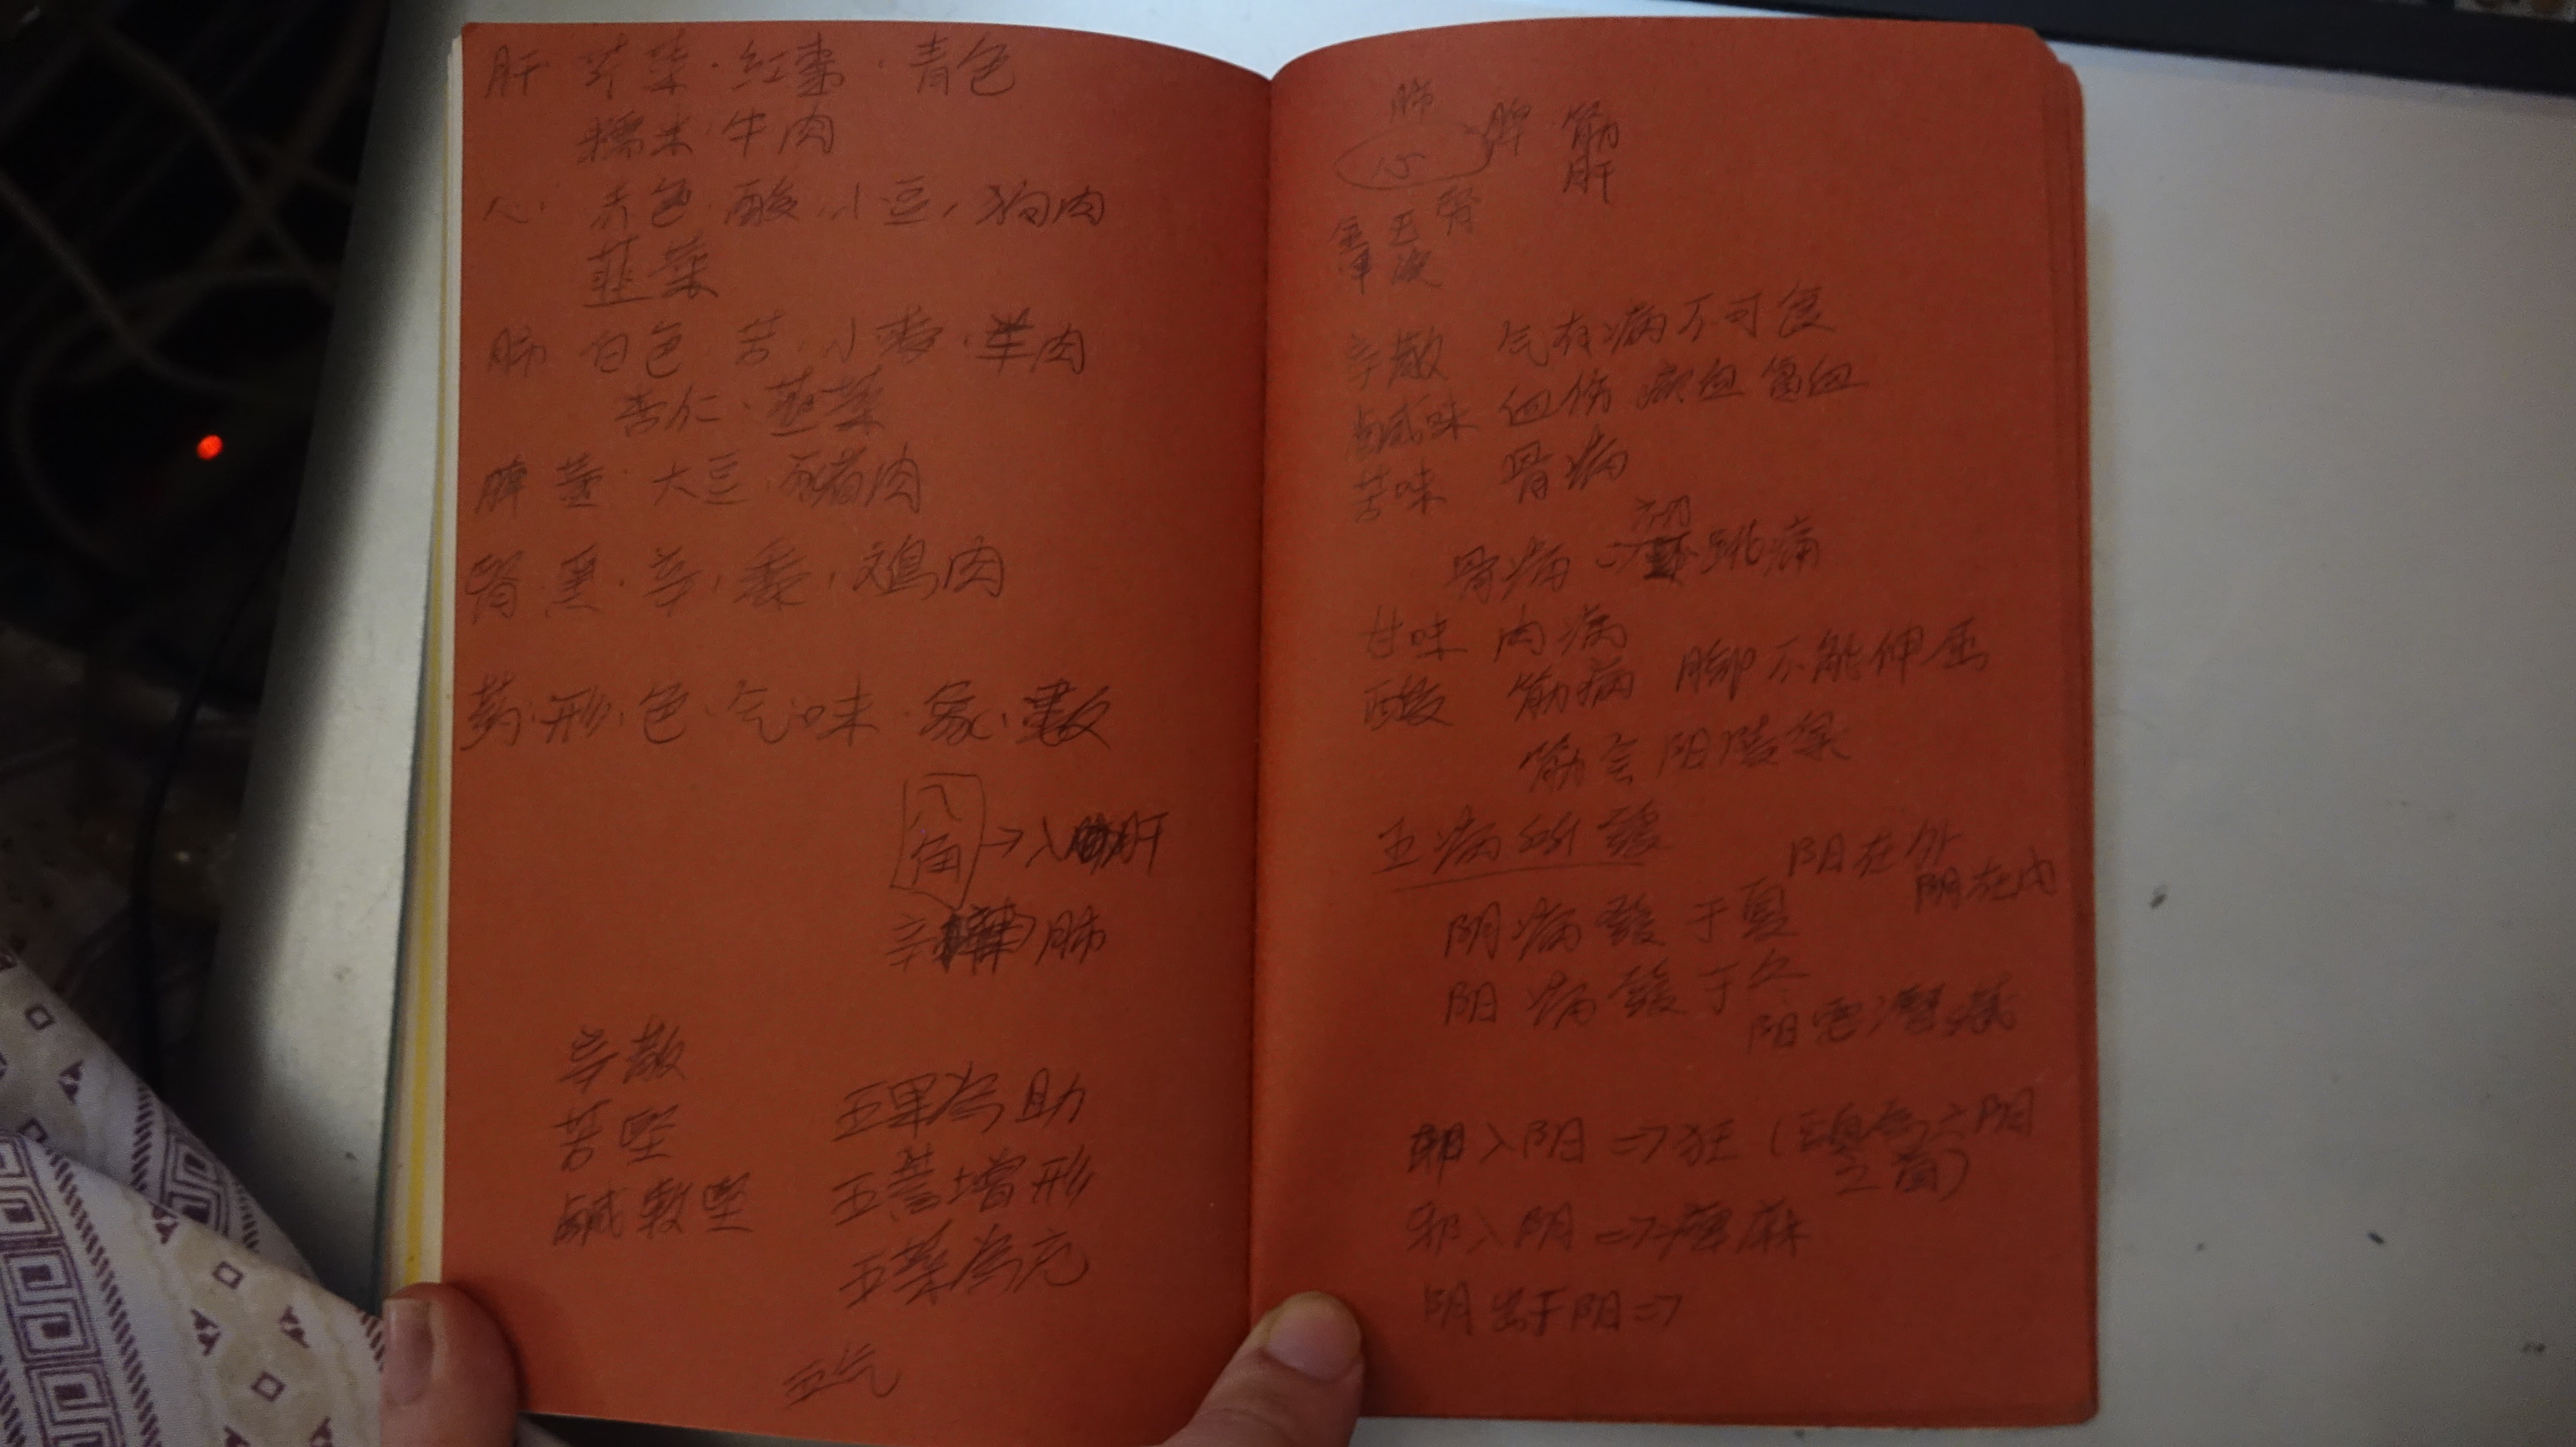 肝 芥菜·红枣·青色
糯米·牛肉
心 赤色·酸·小豆,狗肉
韮菜
肺 白色·苦·小麦·羊肉
杏仁·薤菜
脾 黄·大豆·豬肉
腎·黑·辛,黍,鸡肉
药·形·色·气·味·象·数
八角→入肝
辛 肺
辛散
苦坚
鹹軟堅
五果為助
五畜增形
五菜為充
五气
肺
心 脾 筋
肝
腎
金津 玉液
辛散 气有病不可食
鹹味 血伤 瘀血 貧血
苦味 骨病
骨病 初 跳痛
甘味 肉病
酸 筋病 脚不能伸屈
筋会阳陵泉
五病所發
阳在外
阴在内
阴病發于夏
阳病發于冬
阳 潛藏
邪入阳=>狂(頭為六阳之首)
邪入阴=>痺麻
阴出于阳=>